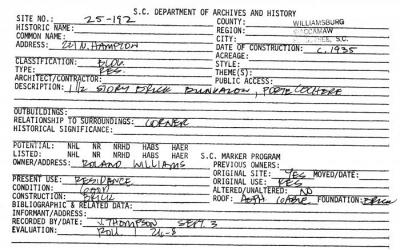 S.C. DEPARTMENT OF ARCHIVES AND HISTORY
SITE NO.: 25-192
COUNTY: WILLIAMSBURG
HISTORIC NAME:
REGION: WACCAMAW
COMMON NAME:
CITY: S.C.
ADDRESS: 221 N. HAMPTON
DATE OF CONSTRUCTION: C. 1935
ACREAGE:
CLASSIFICATION: BLDG.
STYLE:
TYPE: RES.
THEME(S):
ARCHITECT/CONTRACTOR:
PUBLIC ACCESS:
DESCRIPTION: 1 1/2 STORY BRICK BUNGALOW, PORTE COCHERE
OUTBUILDINGS:
RELATIONSHIP TO SURROUNDINGS: CORNER
HISTORICAL SIGNIFICANCE:
POTENTIAL: NHL NR NRHD HABS HAER
LISTED: NHL NR NRHD HABS HAER S.C. MARKER PROGRAM
OWNER/ADDRESS: ROLAND WILLIAMS
PREVIOUS OWNERS:
ORIGINAL SITE: YES MOVED/DATE:
PRESENT USE: RESIDENCE
ORIGINAL USE: RES
CONDITION: GOOD
ALTERED/UNALTERED: NO
CONSTRUCTION: BRICK
ROOF: ASPH GABLE FOUNDATION: BRICK
BIBLIOGRAPHIC & RELATED DATA:
INFORMANT/ADDRESS:
RECORDED BY/DATE: J. THOMPSON SEPT. 3
EVALUATION: ROLL 1 26-8